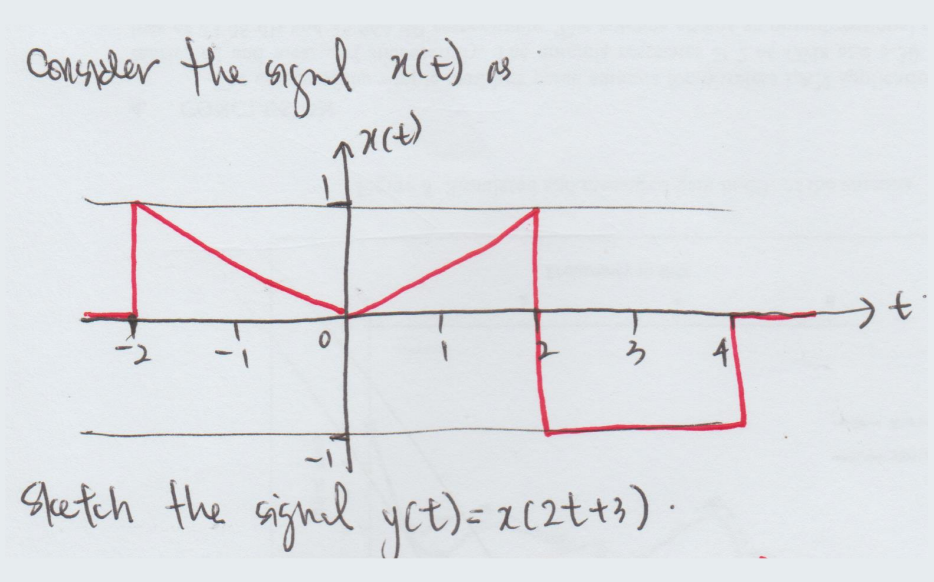 Consider the signl x(t) as
x(t)
1
t
-2 -1 0 1 2 3 4
-1
Sketch the signal y(t)=x(2t+3).